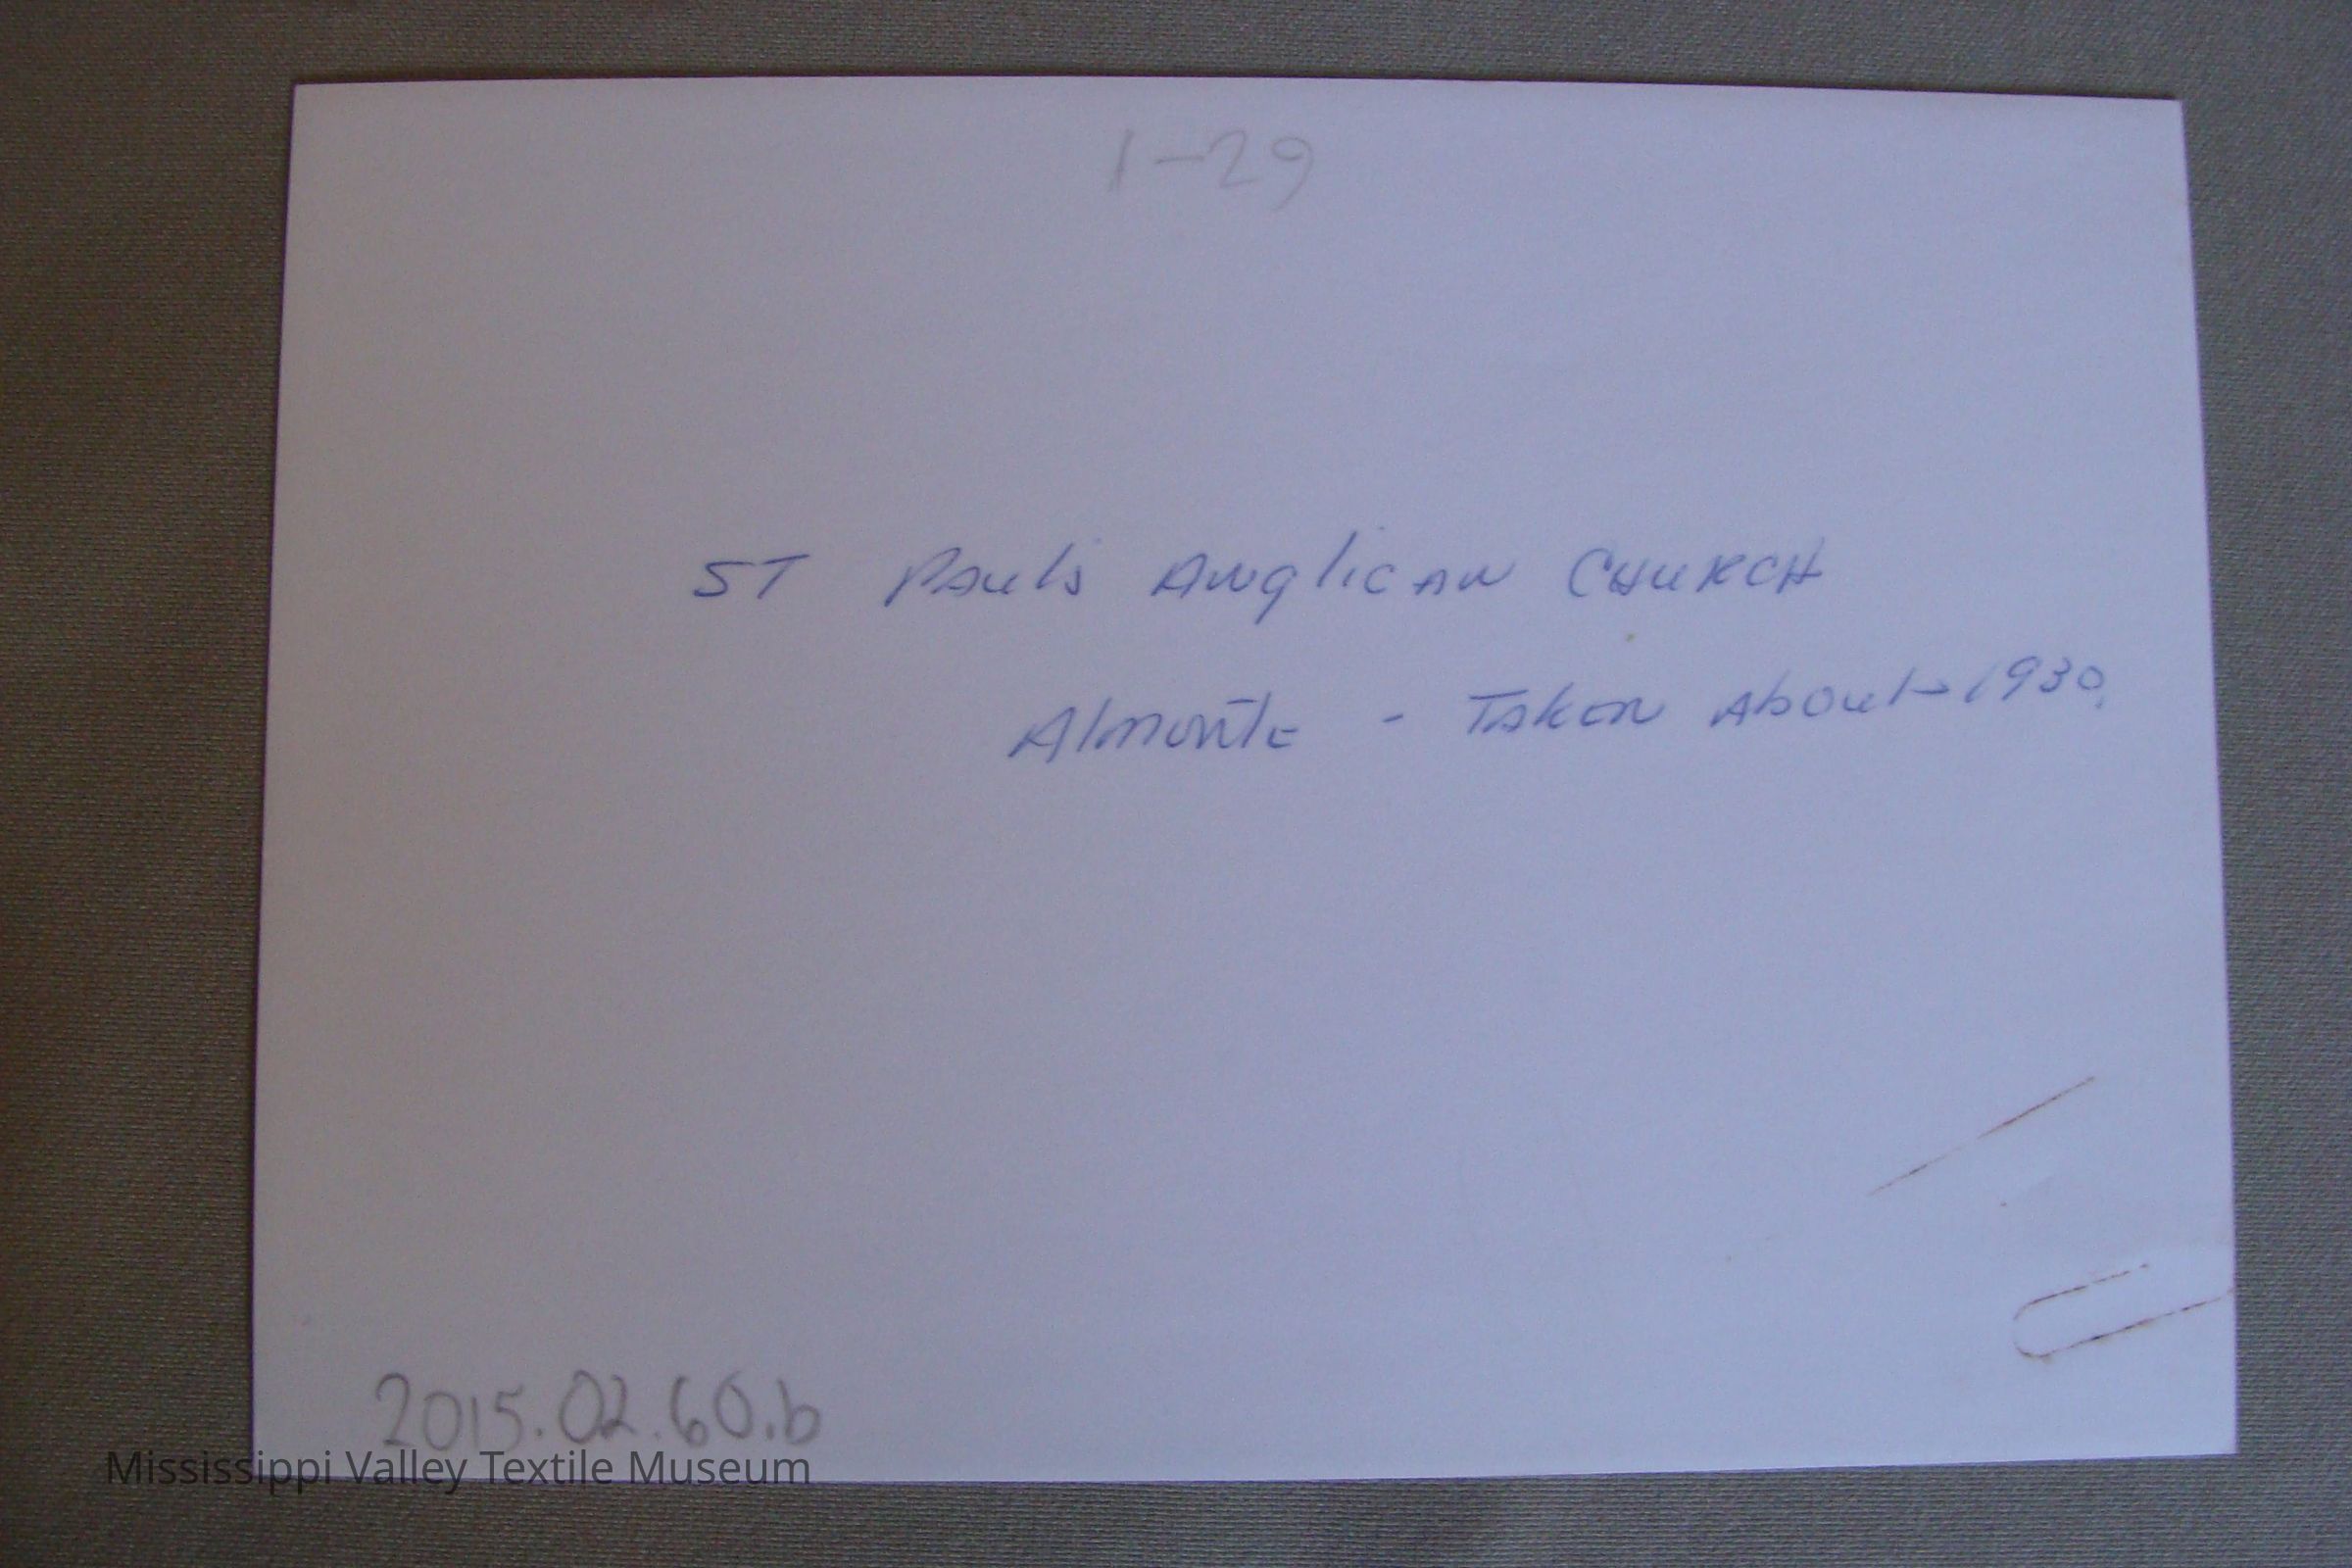 1-29
ST Paul's Anglican CHURCH
Almonte - Taken About 1930.
2015.02.60.b
Mississippi Valley Textile Museum